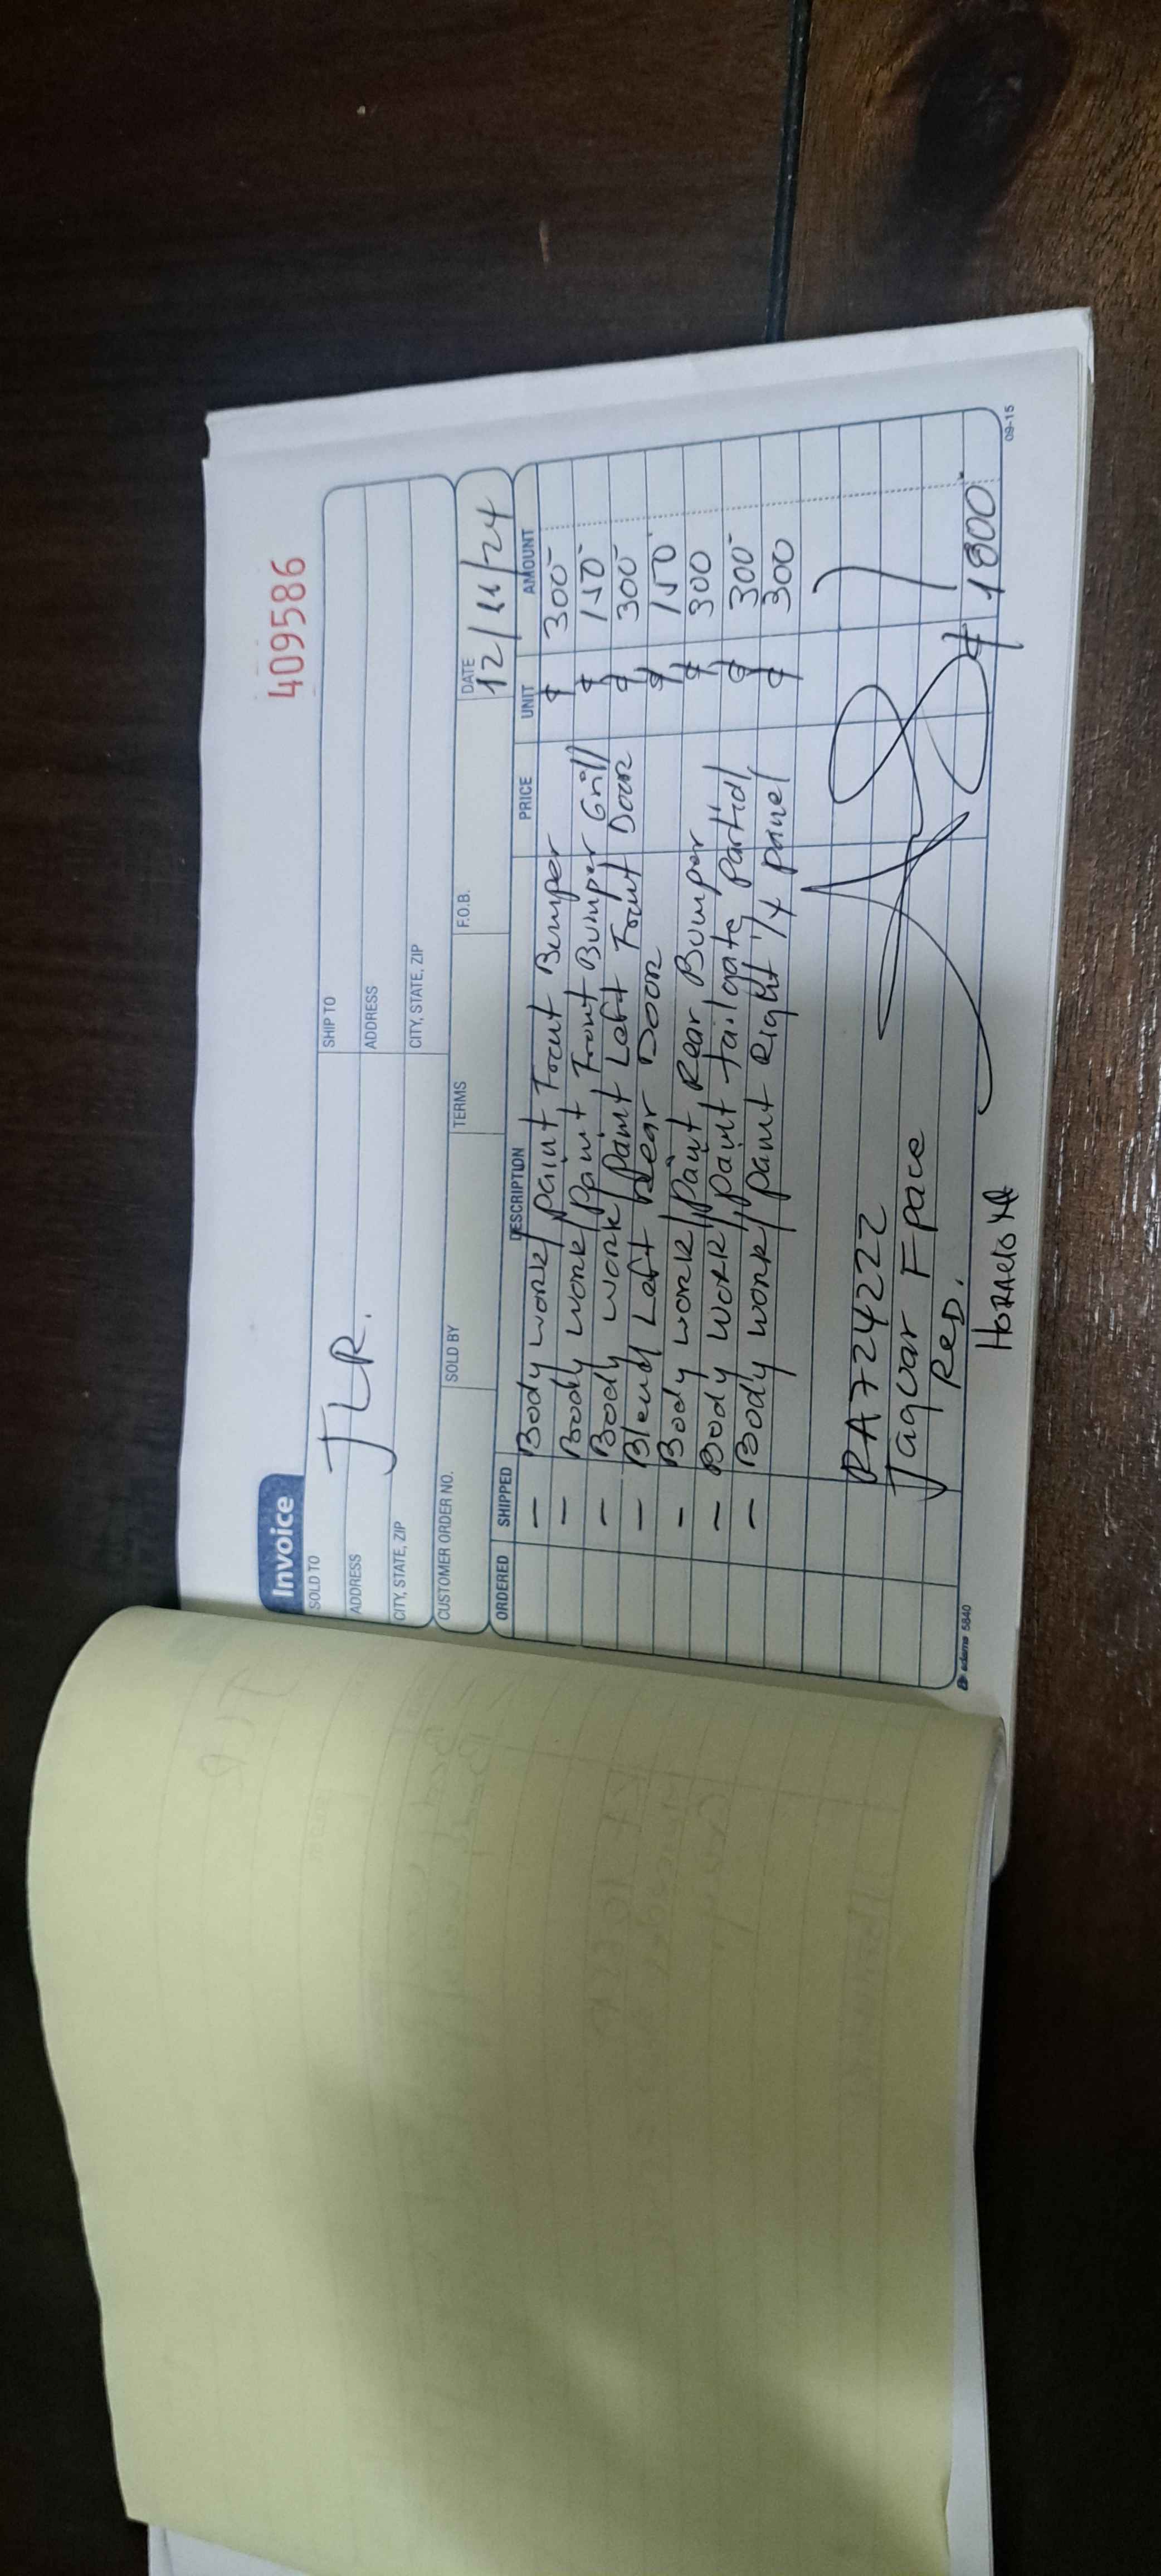 409586
Invoice
SOLD TO
JLR.
SHIP TO
ADDRESS
ADDRESS
CITY, STATE, ZIP
CITY, STATE, ZIP
CUSTOMER ORDER NO.
SOLD BY
TERMS
F.O.B.
DATE
12/11/24
ORDERED SHIPPED DESCRIPTION PRICE UNIT AMOUNT
- Body work/paint Front Bumper $ 300-
- Body work/Paint Front Bumper Grill $ 150-
- Body work/Paint Left Front Door $ 300-
- Blend Left Rear Door $ 150-
- Body work/Paint Rear Bumper $ 300
- Body work/paint tailgate Partial $ 300-
- Body work/paint Right 1/4 panel $ 300
RA724222
Jaguar Fpace
Red.
$ 1800-
adams 5840
09-15